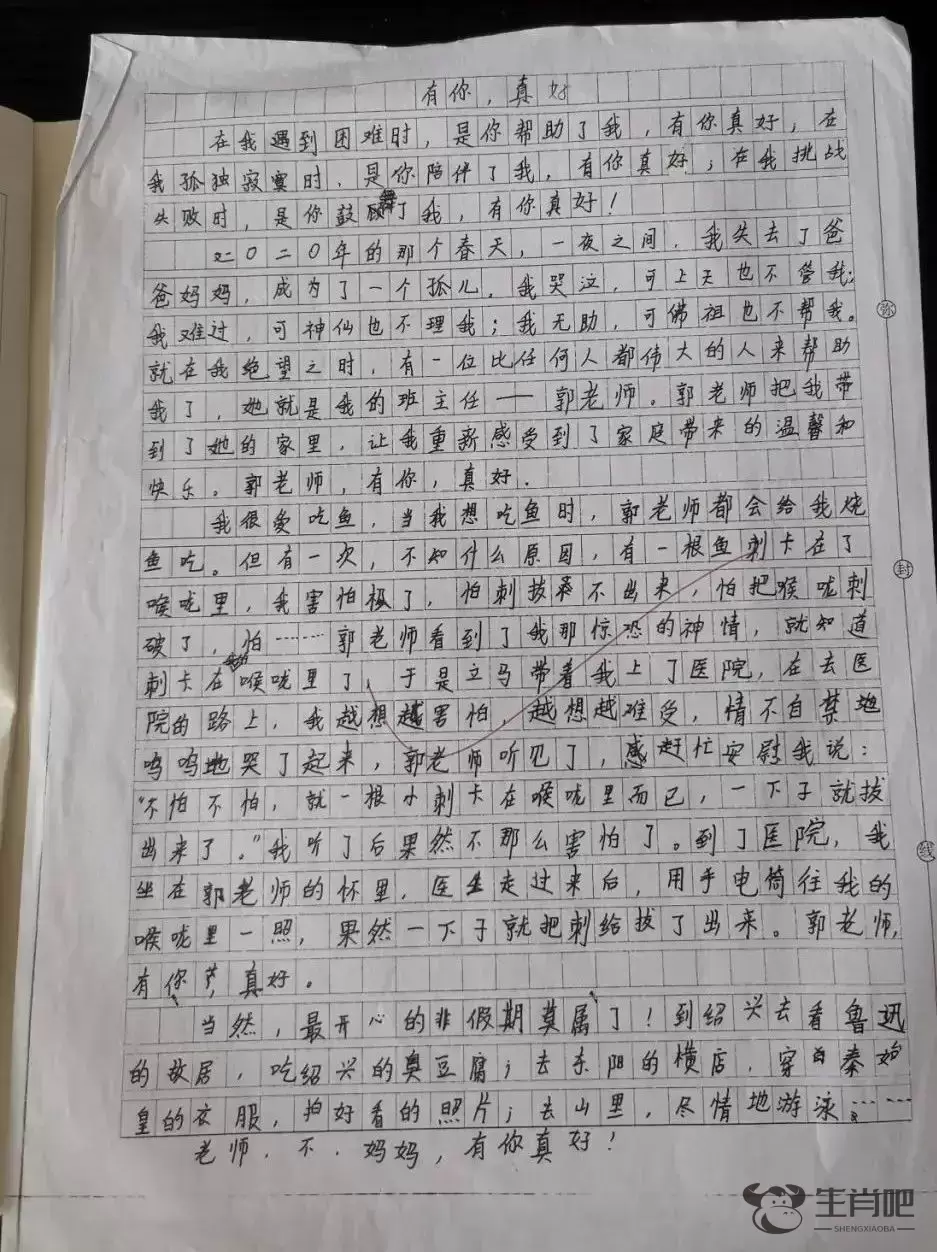 有你，真好
在我遇到困难时，是你帮助了我，有你真好，在
我孤独寂寞时，是你陪伴了我，有你真好；在我挑战
失败时，是你鼓舞了我，有你真好！
二〇二〇年的那个春天，一夜之间，我失去了爸
爸妈妈，成为了一个孤儿。我哭泣，可上天也不管我；
我难过，可神仙也不理我；我无助，可佛祖也不帮我。
就在我绝望之时，有一位比任何人都伟大的人来帮助
我了，她就是我的班主任——郭老师。郭老师把我带
到了她的家里，让我重新感受到了家庭带来的温馨和
快乐。郭老师，有你，真好.
我很爱吃鱼，当我想吃鱼时，郭老师都会给我烧
鱼吃。但有一次，不知什么原因，有一根鱼刺卡在了
喉咙里，我害怕极了，怕刺拔不出来，怕把喉咙刺
破了，怕……郭老师看到了我那惊恐的神情，就知道
刺卡在我的喉咙里了，于是立马带着我上了医院，在去医
院的路上，我越想越害怕，越想越难受，情不自禁地
呜呜地哭了起来，郭老师听见了，赶忙安慰我说：
“不怕不怕，就一根小刺卡在喉咙里而已，一下子就拔
出来了。”我听了后果然不那么害怕了。到了医院，我
坐在郭老师的怀里，医生走过来后，用手电筒往我的
喉咙里一照，果然一下子就把刺给拔了出来。郭老师，
有你，真好。
当然，最开心的非假期莫属了！到绍兴去看鲁迅
的故居，吃绍兴的臭豆腐；去东阳的横店，穿秦始
皇的衣服，拍好看的照片；去山里，尽情地游泳……
老师．不．妈妈，有你真好！
弥
封
线
生肖吧
SHENGXIAOBA